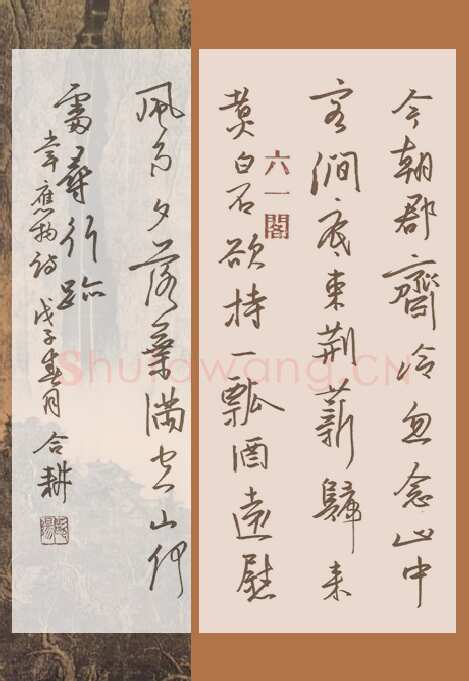 今朝郡齋冷忽念山中
客澗底束荆薪歸来
煮白石欲持一瓢酒遠慰
風雨夕落葉滿空山何
處尋行跡
韋應物詩 戊子春月 合耕
六一閣
Shufawang.CN